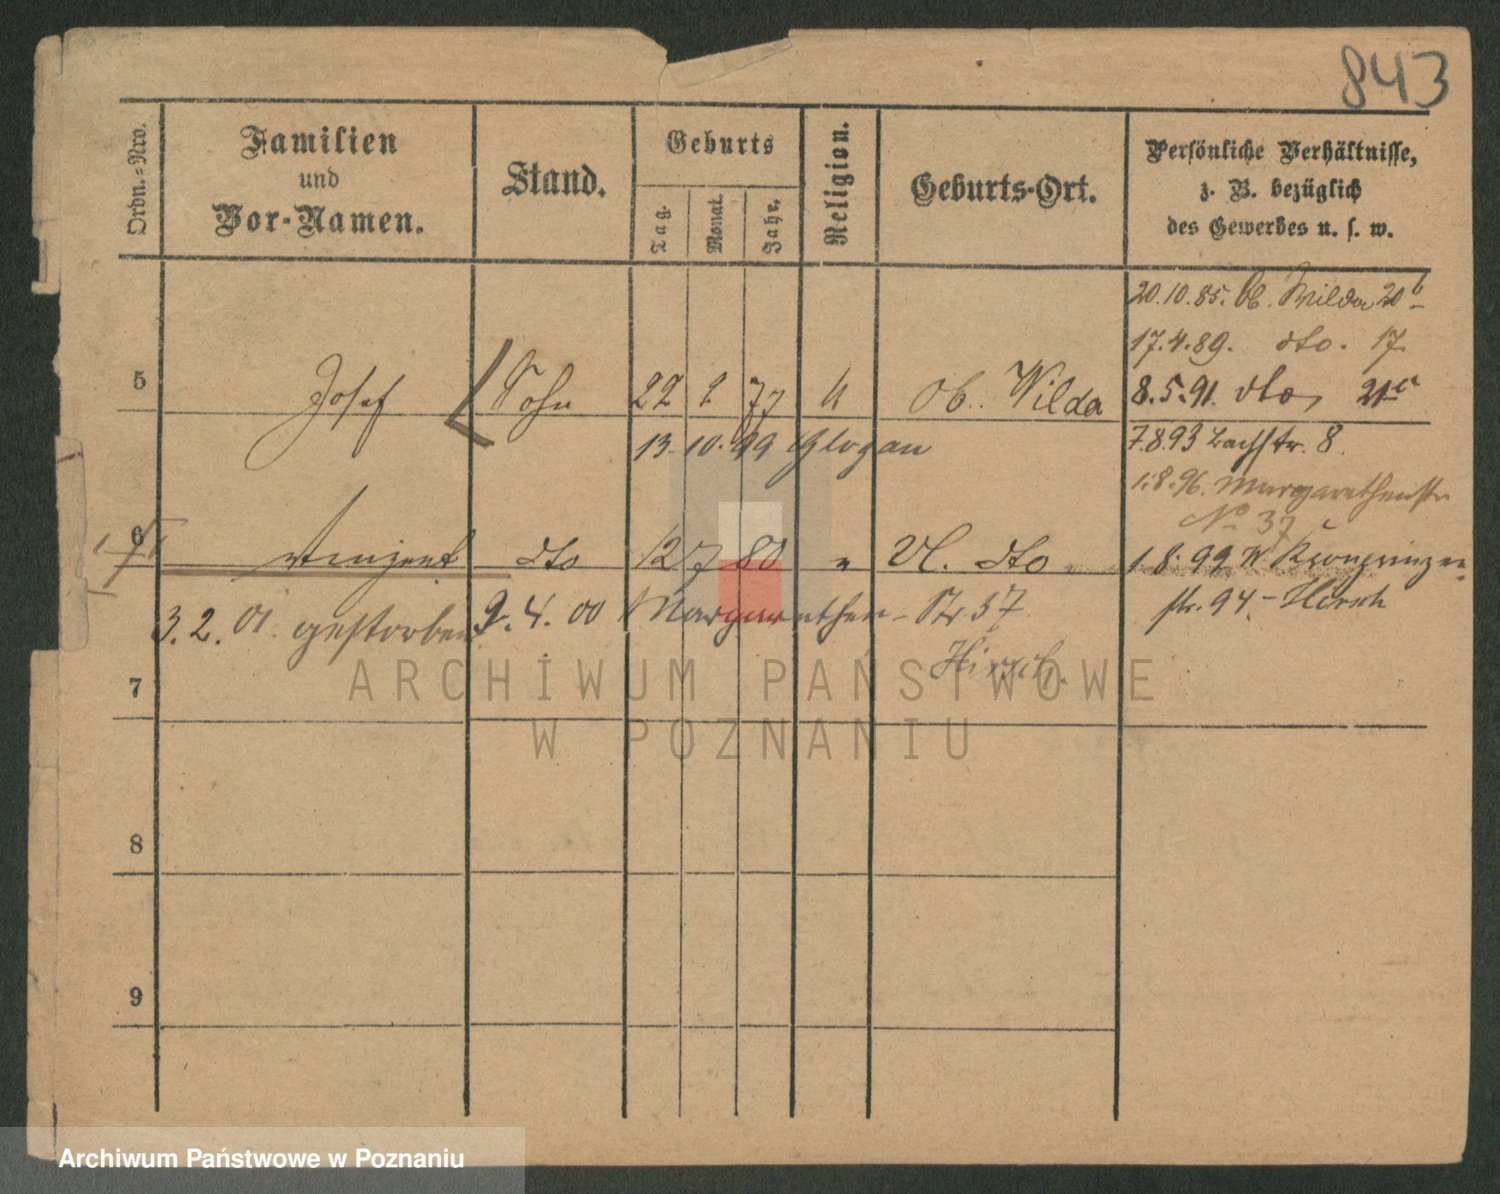 843
Ordn.-Nro.
Familien
und
Vor-Namen.
Stand.
Geburts
Tag.
Monat.
Jahr.
Religion.
Geburts-Ort.
Persönliche Verhältnisse,
z. B. bezüglich
des Gewerbes u. s. w.
20.10.85. Ob. Wilda 20 b
17.4.89. dto. 17
5 Josef Sohn 22 2 77 k Ob. Wilda
8.5.91. dto, 21a
13. 10. 99 Glogau
7.8.93 Bachstr. 8.
1.8.96. Margarethenstr
No 37
6 Vinzent dto 12 7 80 " Ul. dto
1.8.99 W Kronprinzen
str. 94. - Hirsch
3.2.01. gestorben
9.4.00 Margarethen-Str 37
Hirsch.
7
8
9
ARCHIWUM PAŃSTWOWE
W POZNANIU
Archiwum Państwowe w Poznaniu